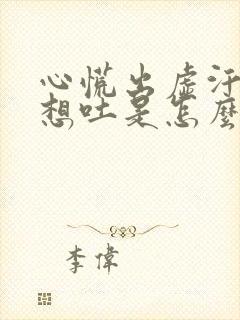 心慌出虛汗
想吐是怎麼
李偉